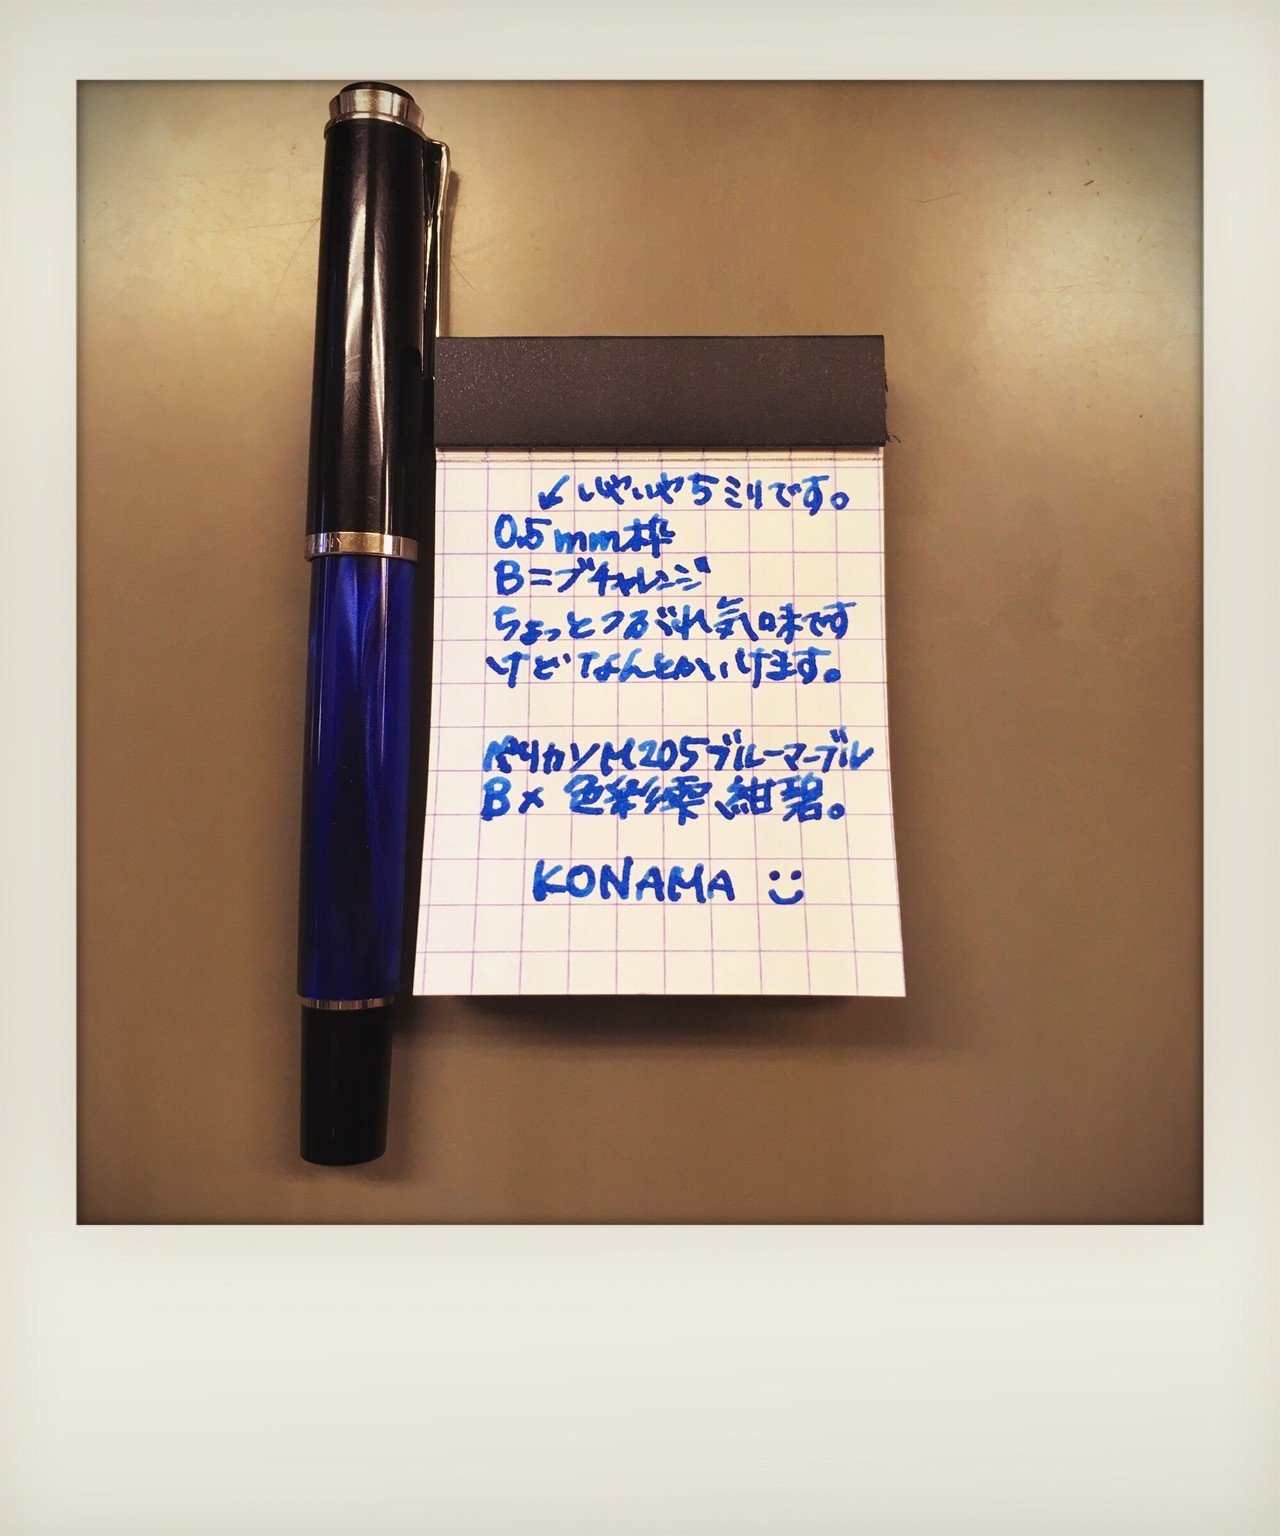 ↙いやいや5ミリです。
0.5mm枠
B=ブチャレンジ
ちょっとつぶれ気味です
けどなんとかいけます。
ペリカンM205ブルーマーブル
B× 色彩雫 紺碧。
KONAMA